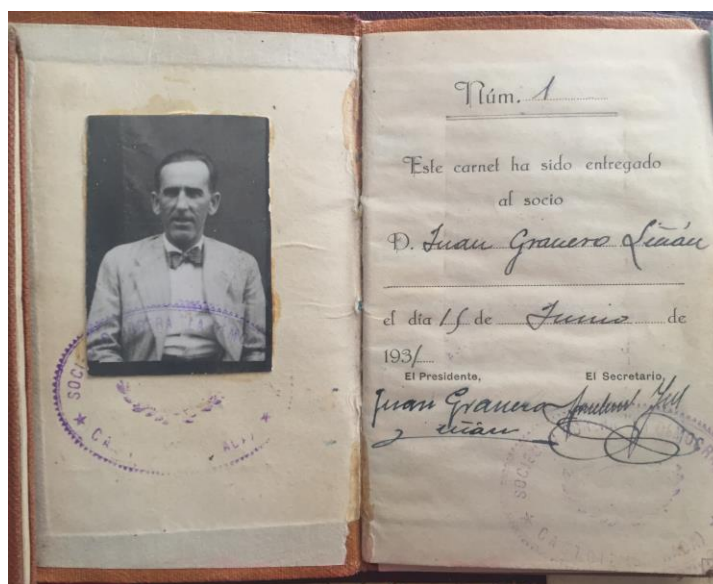 Núm. 1
Este carnet ha sido entregado
al socio
D. Juan Granero Liñán
el día 15 de Junio de
1931
El Presidente, El Secretario,
Juan Granero
Liñán